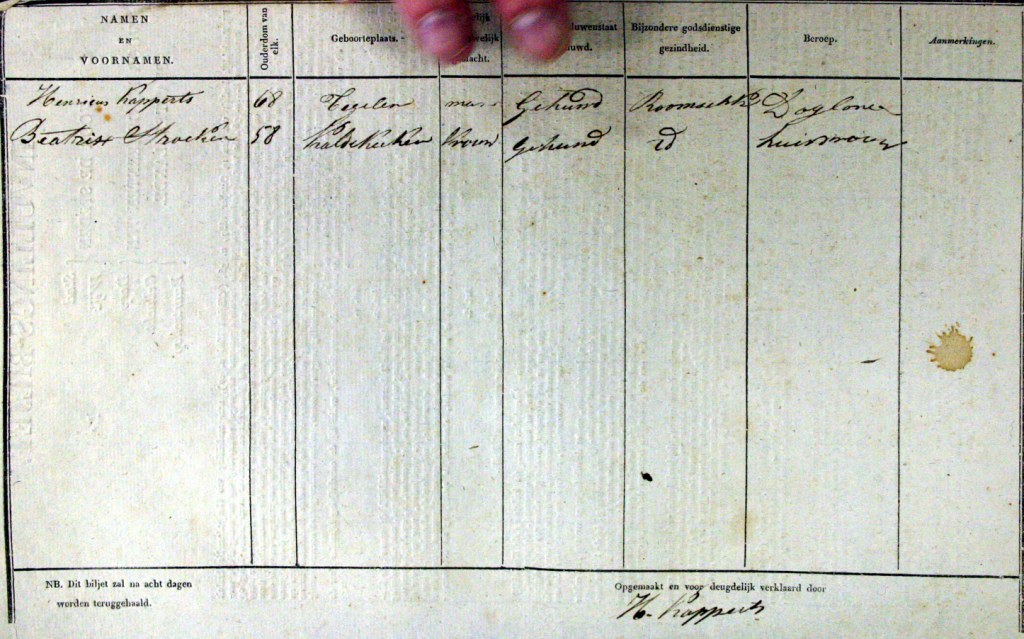 NAMEN EN VOORNAMEN. Ouderdom van elk. Geboorteplaats. Bijzondere godsdienstige gezindheid. Beroep. Aanmerkingen.
Henricus Kapperts 68 Tegelen Gehuwd Roomsch
Beatrix 58 Kaldekerken Vrouw gehuwd id huisvrouw
NB. Dit biljet zal na acht dagen worden teruggehaald.
Opgemaakt en voor deugdelijk verklaard door
H. Kapperts